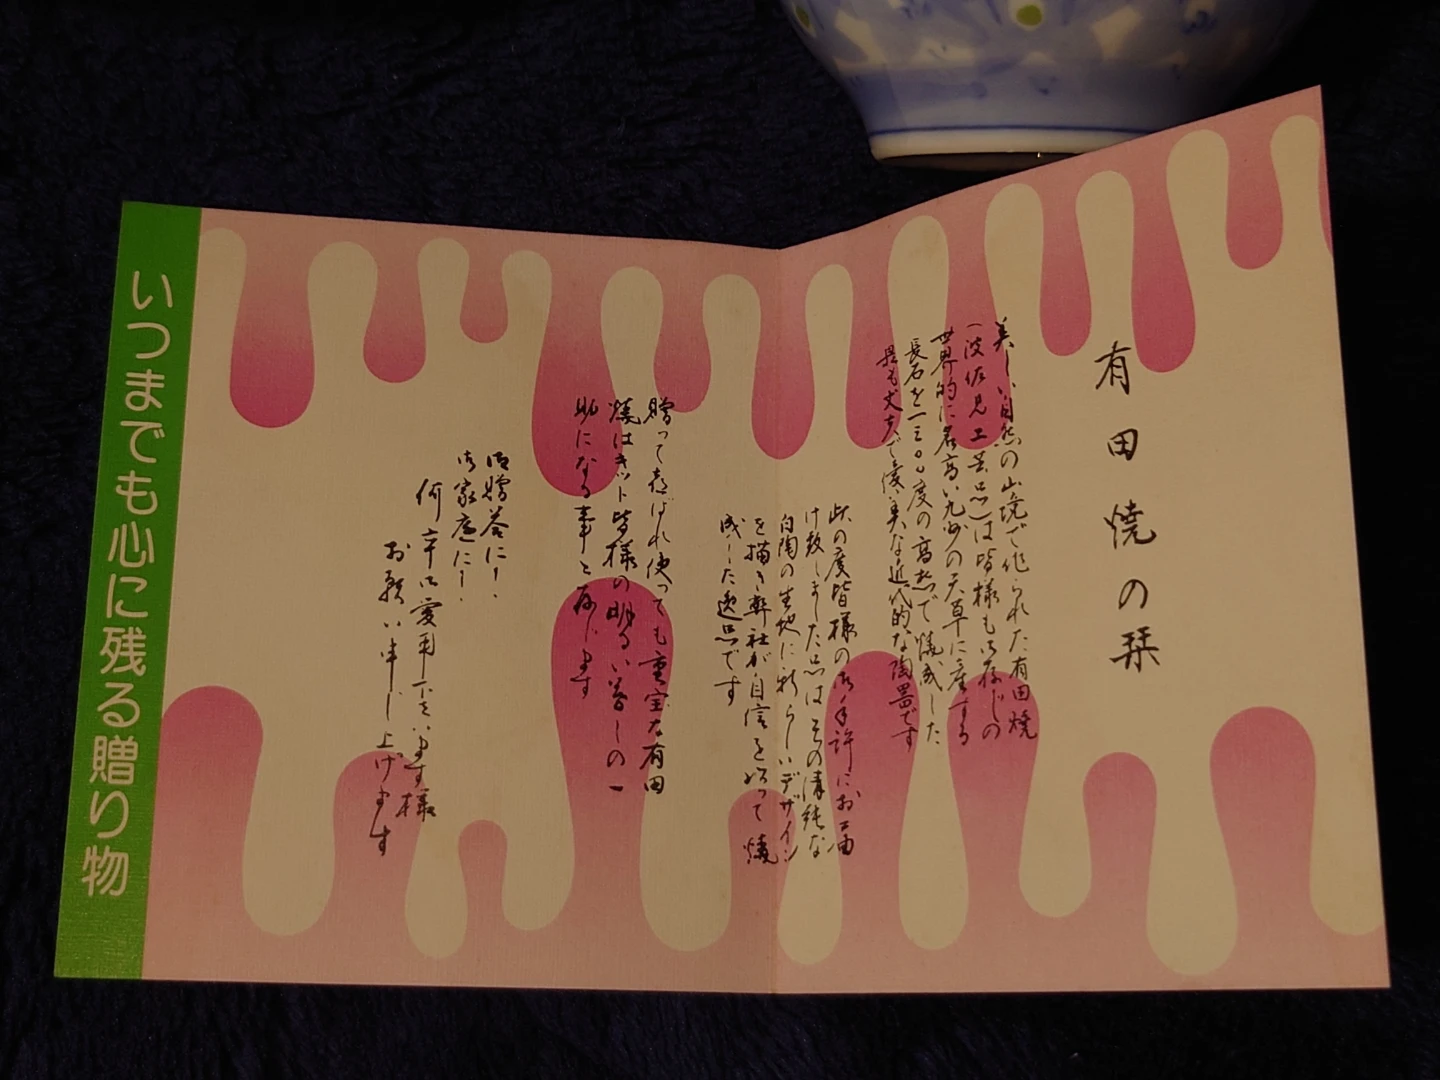 有田焼の栞
美しい自然の山境で作られた有田焼
(波佐見工芸品)は皆様も御存じの
世界的に名高い九州の天草に産する
長石を一三〇〇度の高熱で焼成した
最も丈夫で優美な近代的な陶器です
此の度皆様の御手許にお届
け致しました品はその清純な
白陶の生地に新らしいデザイン
を描き弊社が自信を以って焼
成した逸品です
贈って喜ばれ使っても重宝な有田
焼はキット皆様の明るい暮しの一
助になる事と存じます
御贈答に!
御家庭に!
何卒御愛用下さいます様
お願い申し上げます
いつまでも心に残る贈り物